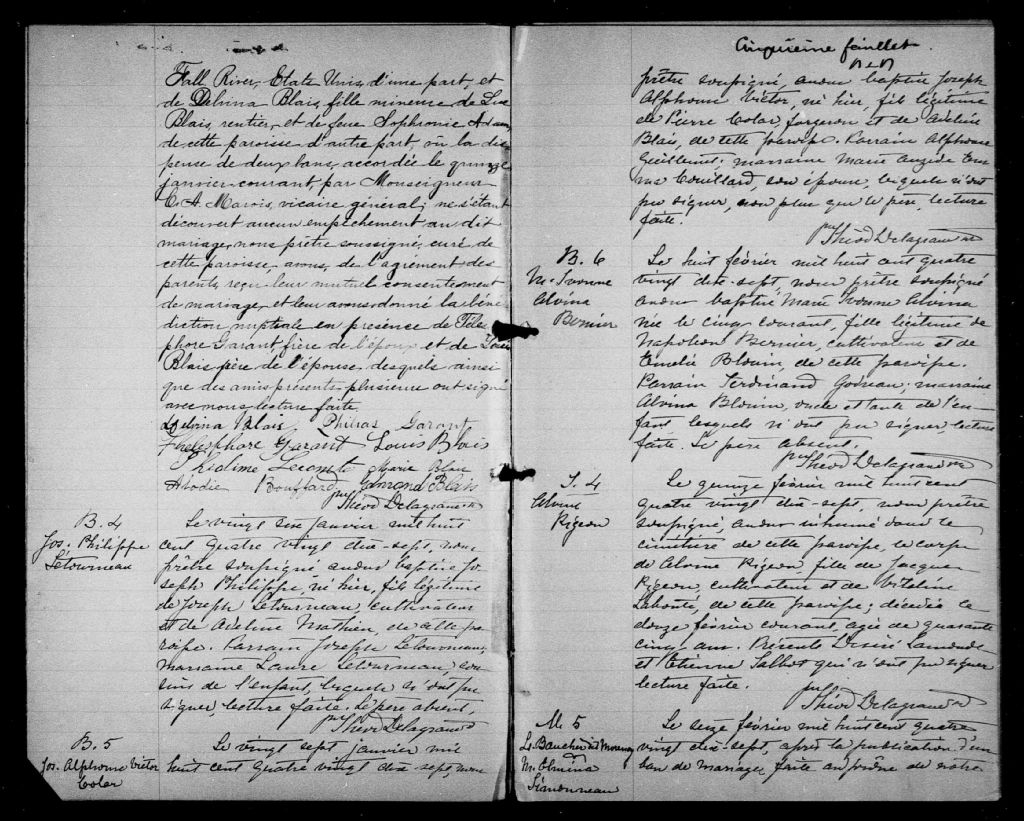 Fall River, Etats Unis, d'une part, et
de Delvina Blais, fille mineure de Luc
Blais, rentier, et de feue Sophronie Adam,
de cette paroisse d'autre part, vû la dis
pense de deux bans, accordée le quinze
janvier courant, par Monseigneur
C. A. Marois, vicaire général; ne s'étant
découvert aucun empêchement au dit
mariage, nous prêtre soussigné, curé de
cette paroisse avons, de l'agrément des
parents, reçu leur mutuel consentement
de mariage, et leur avons donné la béné
diction nuptiale en présence de Téles
phore Garant, frère de l'époux et de Louis
Blais père de l'épouse desquels ainsi
que des amis présents plusieurs ont signé
avec nous lecture faite.
Delvina Blais. Philias Garant
Thelesphore Garant Louis Blais
Lecompte Marie Blais
Bouffard Edmond Blais
ptre Théod Delagrave
B. 4
Jos. Philippe
Létourneau
Le vingt six janvier mil huit
cent quatre vingt dix-sept, nous
prêtre soussigné avons baptisé Jo
seph Philippe, né hier, fils légitime
de Joseph Letourneau, cultivateur
et de Aveline Mathieu, de cette pa
roisse. Parrain Joseph Letourneau,
Marraine Laure Letourneau, cou
sins de l'enfant, lesquels n'ont pu
signer, lecture faite. Le père absent.
ptre Théod Delagrave
B. 5
Jos. Alphonse Victor
Colar
Le vingt sept janvier mil
huit cent quatre vingt dix-sept, nous
Cinquième feuillet.
prêtre soussigné, avons baptisé Joseph
Alphonse Victor, né hier, fils légitime
de Pierre Colar, forgeron et de Aveline
Blais, de cette paroisse. Parrain Alphonse
Guillemet; marraine Marie Em
ma Couillard, son épouse, lesquels n'ont
pu signer, non plus que le père, lecture
faite.
ptre Théod Delagrave
B. 6
M. Ivonne
Alvina
Bernier
Le huit février mil huit cent quatre
vingt dix-sept, nous prêtre soussigné
avons baptisé Marie Ivonne Alvina
née le cinq courant, fille légitime de
Napoléon Bernier, cultivateur et de
Emélie Blouin, de cette paroisse.
Parrain Ferdinand marraine
Alvina Blouin, oncle et tante de l'en
fant lesquels n'ont pu signer lecture
faite. Le père absent.
ptre Théod Delagrave
S. 4
Pigeon
Le quinze février mil huit cent
quatre vingt dix-sept, nous prêtre
soussigné, avons inhumé dans le
cimitière de cette paroisse, le corps
de Pigeon, fils de Jacques
Pigeon, cultivateur et de
Labonté, de cette paroisse; décédé le
douze février courant, agé de quarante
cinq ans. Présents Désiré Lamonde
et Etienne Talbot qui n'ont pu signer
lecture faite.
ptre Théod Delagrave
M. 5
Ls. Boucher dit Morency
M.
Simonneau
Le seize février mil huit cent quatre
vingt dix-sept, après la publication d'un
ban de mariage, faite au prône de notre